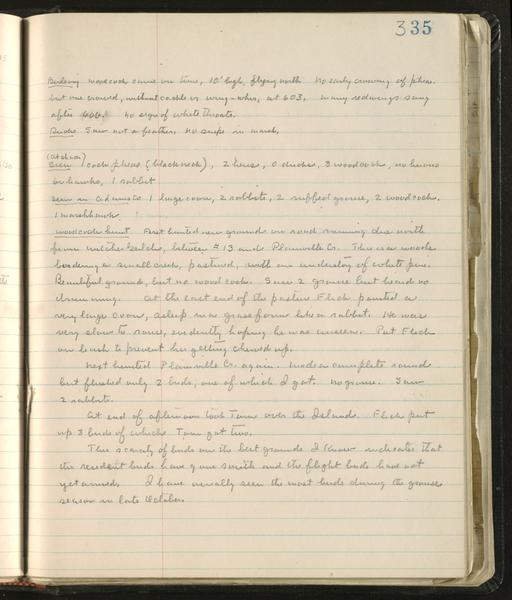 335
Birdsong woodcock came on time, 10' high, flying north. No early crowing of pheas.
but one crowed, without cackle or wing-whir, at 603. Many redwings sang
after 600. No sign of white throats.
Ducks Saw not a feather. No snipe in marsh.
Seen 1 cock pheas (black neck), 2 hens, 0 ducks, 3 woodcock, no herons
or hawks, 1 rabbit
Seen in Adams Co 1 huge coon, 2 rabbits, 2 ruffed grouse, 2 woodcock.
1 marsh hawk.
Woodcock hunt First hunted new grounds on road running due north
from gulch, between #13 and Plainville Cr. This is a woods
bordering a small creek, pastured, with an understory of white pine.
Beautiful ground, but no woodcock. Saw 2 grouse but heard no
drumming. At the east end of the pasture Flick pointed a
very large coon, asleep in a grass form like a rabbit. He was
very slow to rouse, evidently hoping he was unseen. Put Flick
on leash to prevent his getting chewed up.
Next hunted Plainville Cr. again. Made a complete round
but flushed only 2 birds, one of which I got. No grouse. Saw
2 rabbits.
At end of afternoon took Tom over the Island. Flick put
up 3 birds of which Tom got two.
This scarcity of birds on the best grounds I know indicates that
the resident birds have gone south and the flight birds have not
yet arrived. I have usually seen the most birds during the grouse
season in late October.